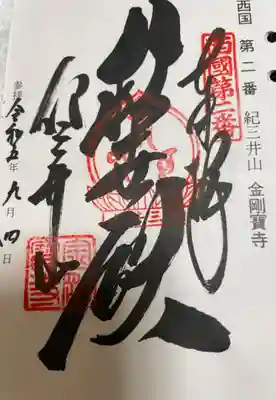 西国 第二番 紀三井山 金剛寶寺
西國第二番
奉拝
救世殿
紀三井寺
参拝 令和五年九月四日